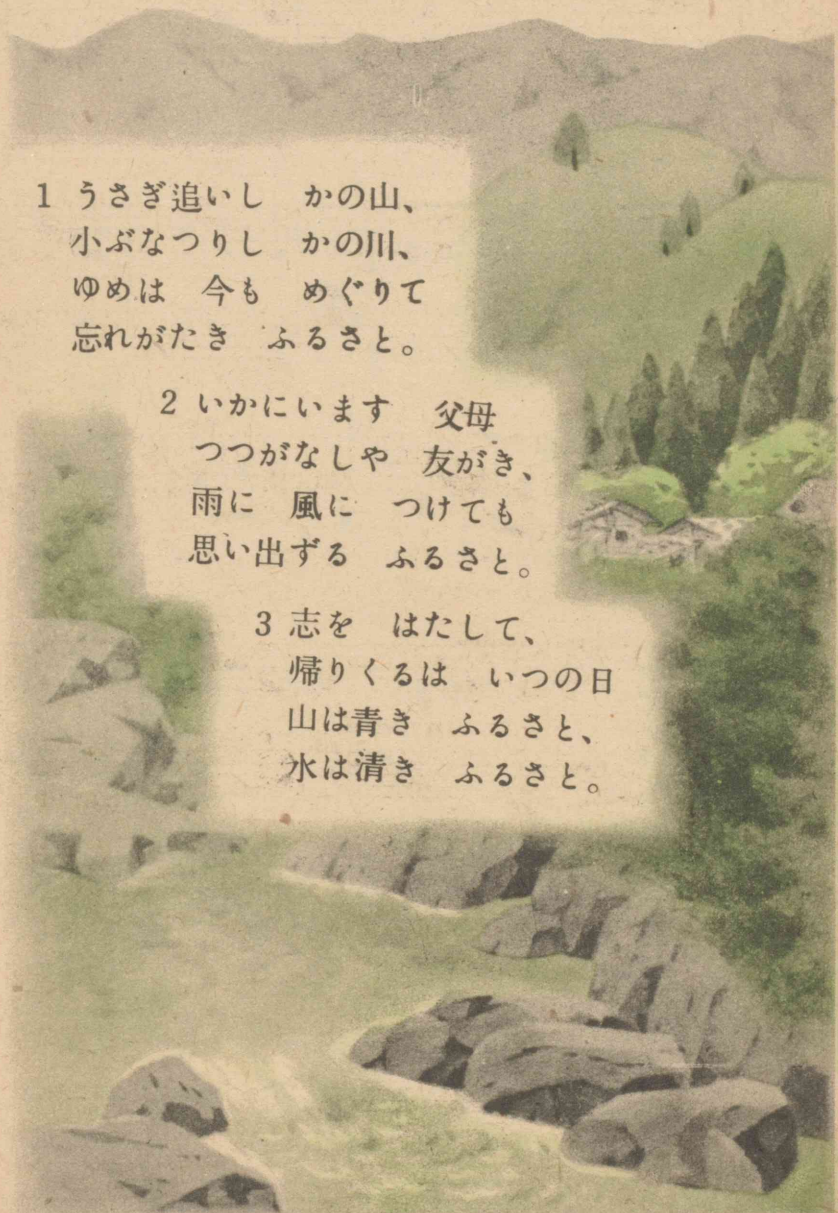 1 うさぎ追いし　かの山、
小ぶなつりし　かの川、
ゆめは　今も　めぐりて
忘れがたき　ふるさと。
2 いかにいます　父母
つつがなしや　友がき、
雨に　風に　つけても
思い出ずる　ふるさと。
3 志を　はたして、
帰りくるは　いつの日
山は青き　ふるさと、
水は清き　ふるさと。